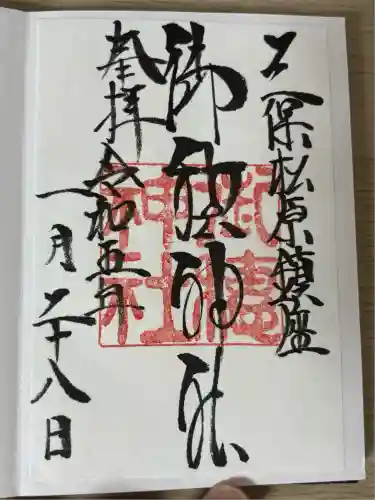 三保松原鎮座
御穂神社
奉拝
令和五年
一月二十八日
御穂
神社